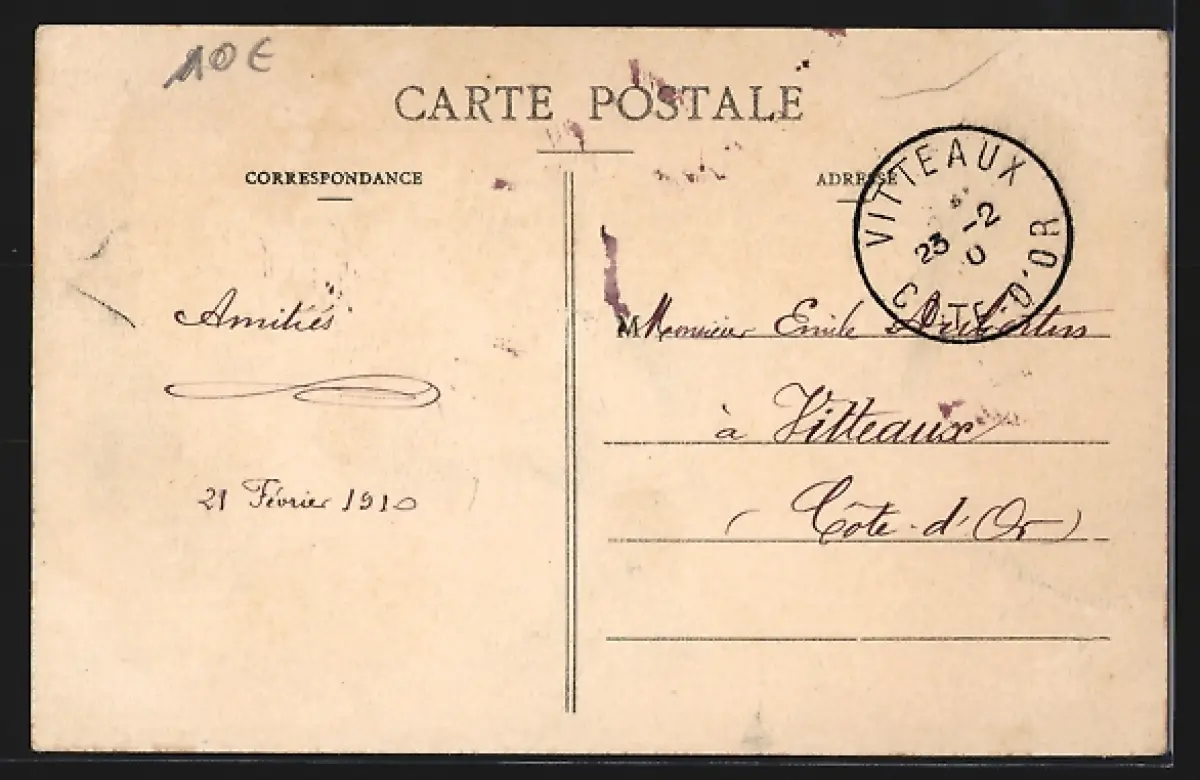 10€
CARTE POSTALE
CORRESPONDANCE
ADRESSE
VITTEAUX
23 -2
0
COTE-D'OR
Amitiés
21 Février 1910
M Monsieur Emile
à Vitteaux
(Côte-d'Or)